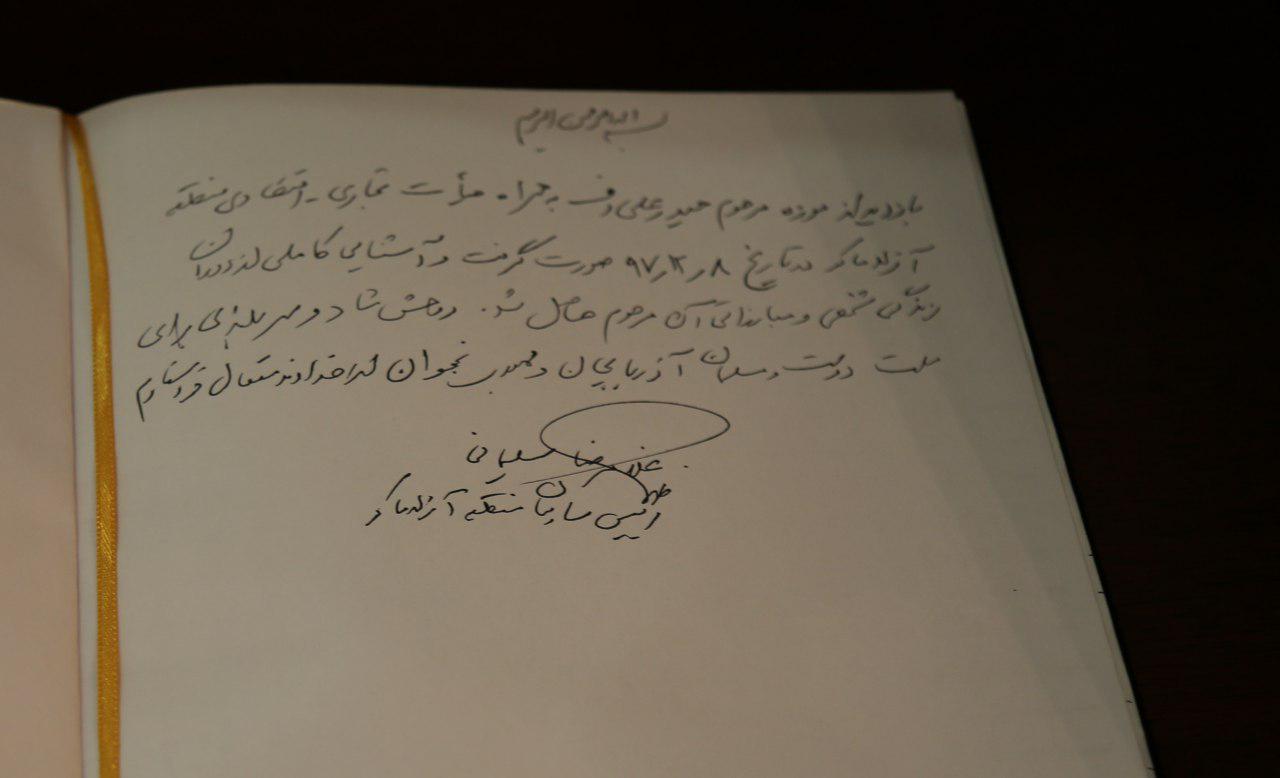 بسم الله الرحمن الرحیم
بازدید از موزه مرحوم حیدر علی اف به همراه هیأت تجاری - اقتصادی منطقه
آزاد ماکو در تاریخ ۹۷٫۳٫۸ صورت گرفت و آشنایی کاملی از دوران
زندگی شخصی و مبارزاتی آن مرحوم حاصل شد. روحش شاد و سربلندی برای
ملت دوست و مسلمان آذربایجان و جمهوری نخجوان از خداوند متعال خواستارم
غلامرضا سلیمانی
رئیس سازمان منطقه آزاد ماکو